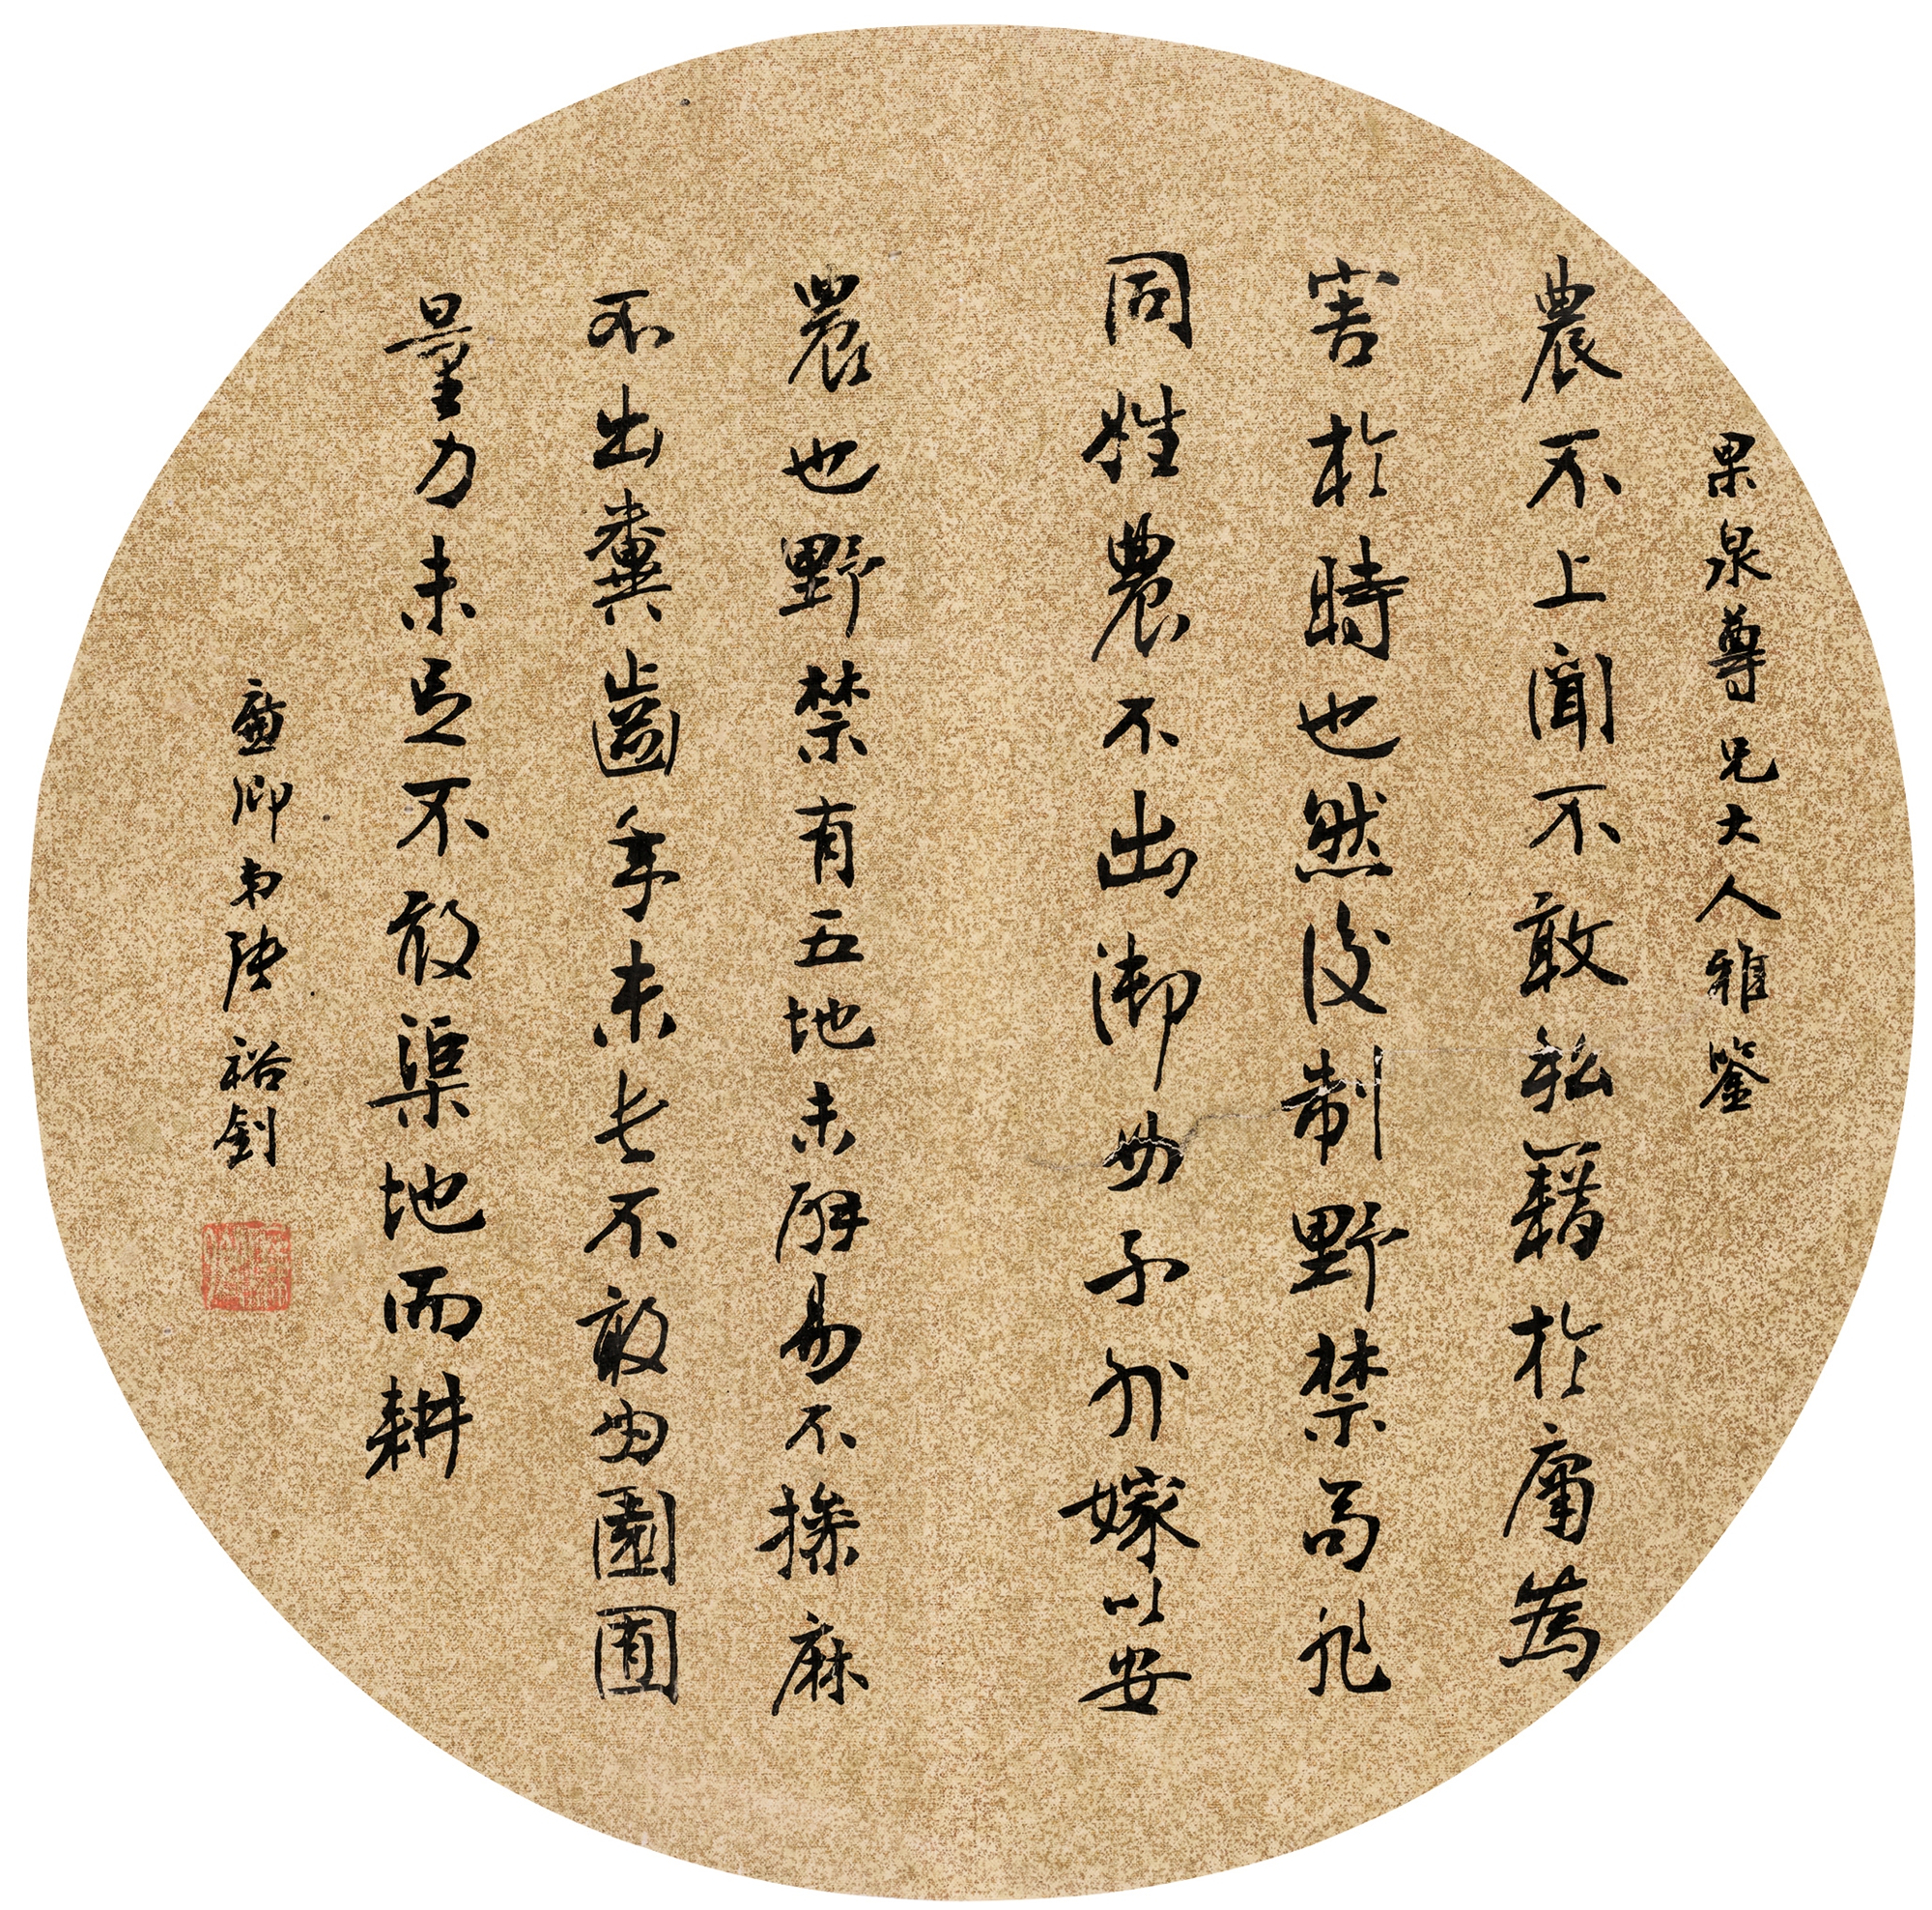 果泉尊兄大人雅鑒
農不上聞不敢私籍於庸為
害於時也然後制野禁苟非
同姓農不出御女子外嫁以安
農也野禁有五地未辟易不操麻
不出糞齒年未長不敢為園囿
量力未足不敢渠地而耕
廉卿弟張裕釗